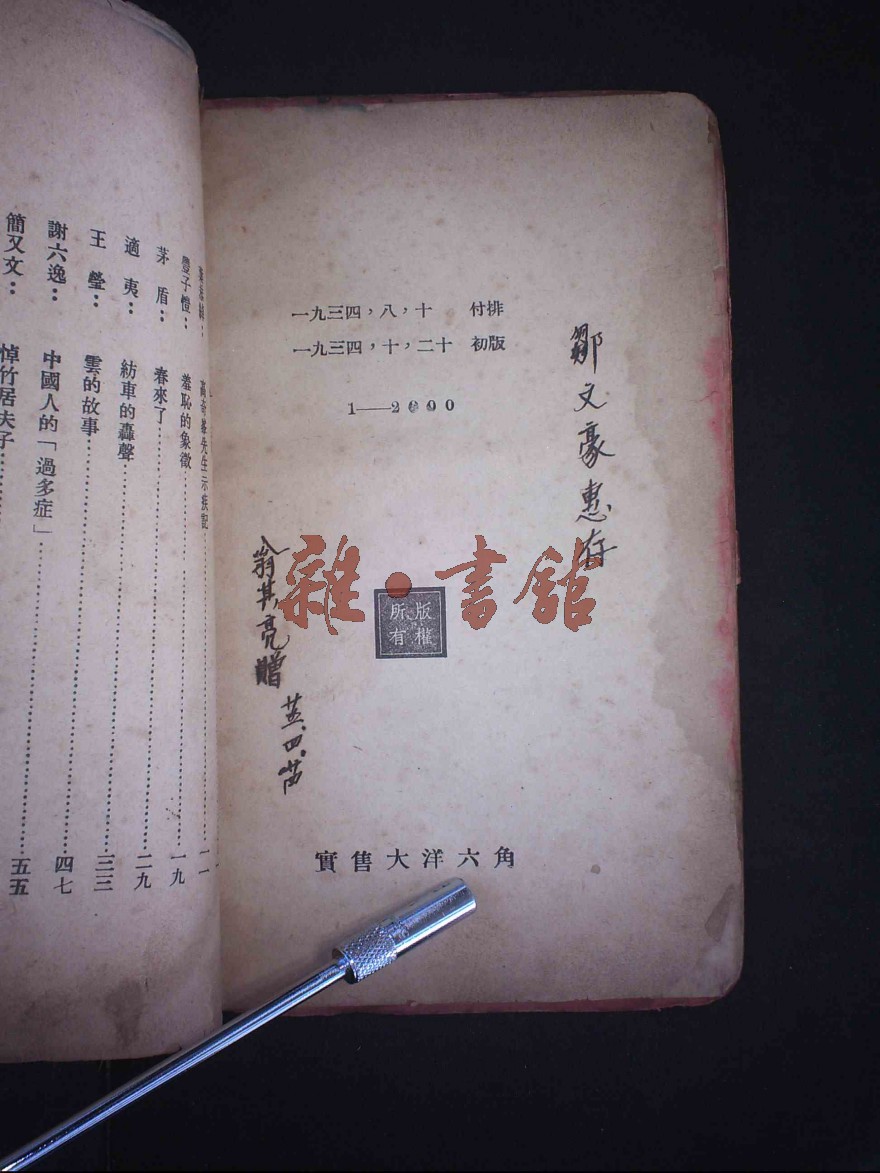 一九三四，八，十　付排
一九三四，十，二十　初版
1——2000
鄒文豪惠存
版權
所有
翁其亮贈
實售大洋六角
雜·書館
豐子愷：羞恥的象徵 一九
茅盾：春來了 二九
適夷：紡車的轟聲 三三
王瑩：雲的故事
謝六逸：中國人的「過多症」 四七
簡又文：悼竹居夫子 五五